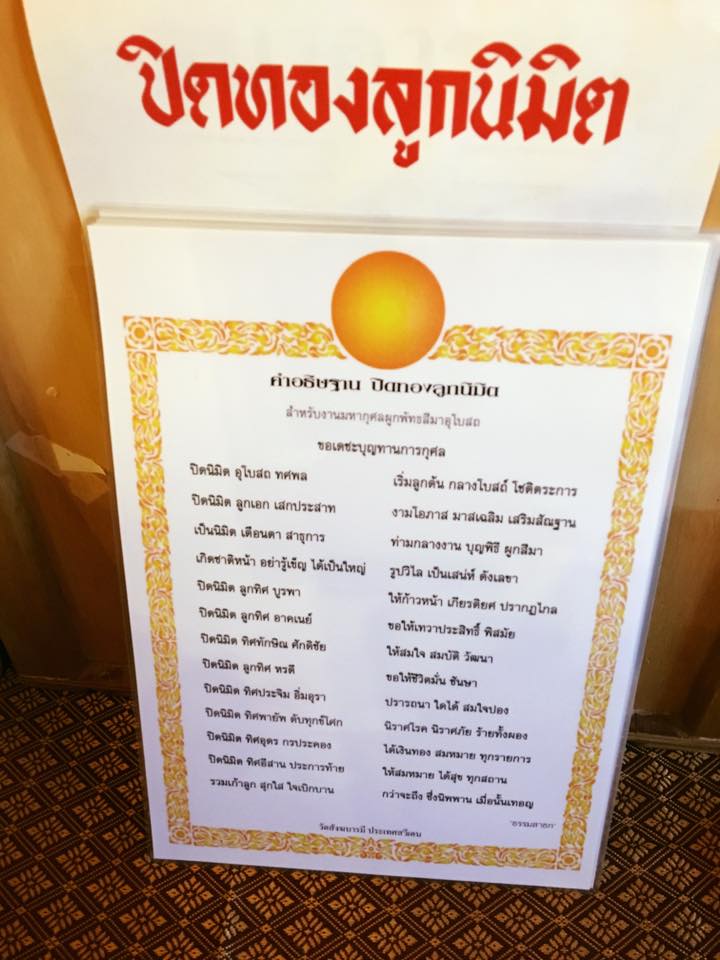 ปิดทองลูกนิมิต
คำอธิษฐาน ปิดทองลูกนิมิต
สำหรับงานมหากุศลผูกพัทธสีมาอุโบสถ
ขอเดชะบุญทานการกุศล
ปิดนิมิต อุโบสถ ทศพล เริ่มลูกต้น กลางโบสถ์ โชติตระการ
ปิดนิมิต ลูกเอก เสกประสาท งามโอภาส มาสเฉลิม เสริมสัณฐาน
เป็นนิมิต เตือนตา สาธุการ ท่ามกลางงาน บุญพิธี ผูกสีมา
เกิดชาติหน้า อย่ารู้เข็ญ ได้เป็นใหญ่ รูปวิไล เป็นเสน่ห์ ดังเลขา
ปิดนิมิต ลูกทิศ บูรพา ให้ก้าวหน้า เกียรติยศ ปรากฏไกล
ปิดนิมิต ลูกทิศ อาคเนย์ ขอให้เทวาประสิทธิ์ พิสมัย
ปิดนิมิต ทิศทักษิณ ศักดิชัย ให้สมใจ สมบัติ วัฒนา
ปิดนิมิต ลูกทิศ หรดี ขอให้ชีวิตมั่น ชันษา
ปิดนิมิต ทิศประจิม อิ่มอุรา ปรารถนา ใดได้ สมใจปอง
ปิดนิมิต ทิศพายัพ ดับทุกข์โศก นิราศโรค นิราศภัย ร้ายทั้งผอง
ปิดนิมิต ทิศอุดร กรประคอง ได้เงินทอง สมหมาย ทุกรายการ
ปิดนิมิต ทิศอีสาน ประการท้าย ให้สมหมาย ได้สุข ทุกสถาน
รวมเก้าลูก สุกใส ใจเบิกบาน กว่าจะถึง ซึ่งนิพพาน เมื่อนั้นเทอญ
"ธรรมสาธก"
วัดสังฆบารมี ประเทศสวีเดน